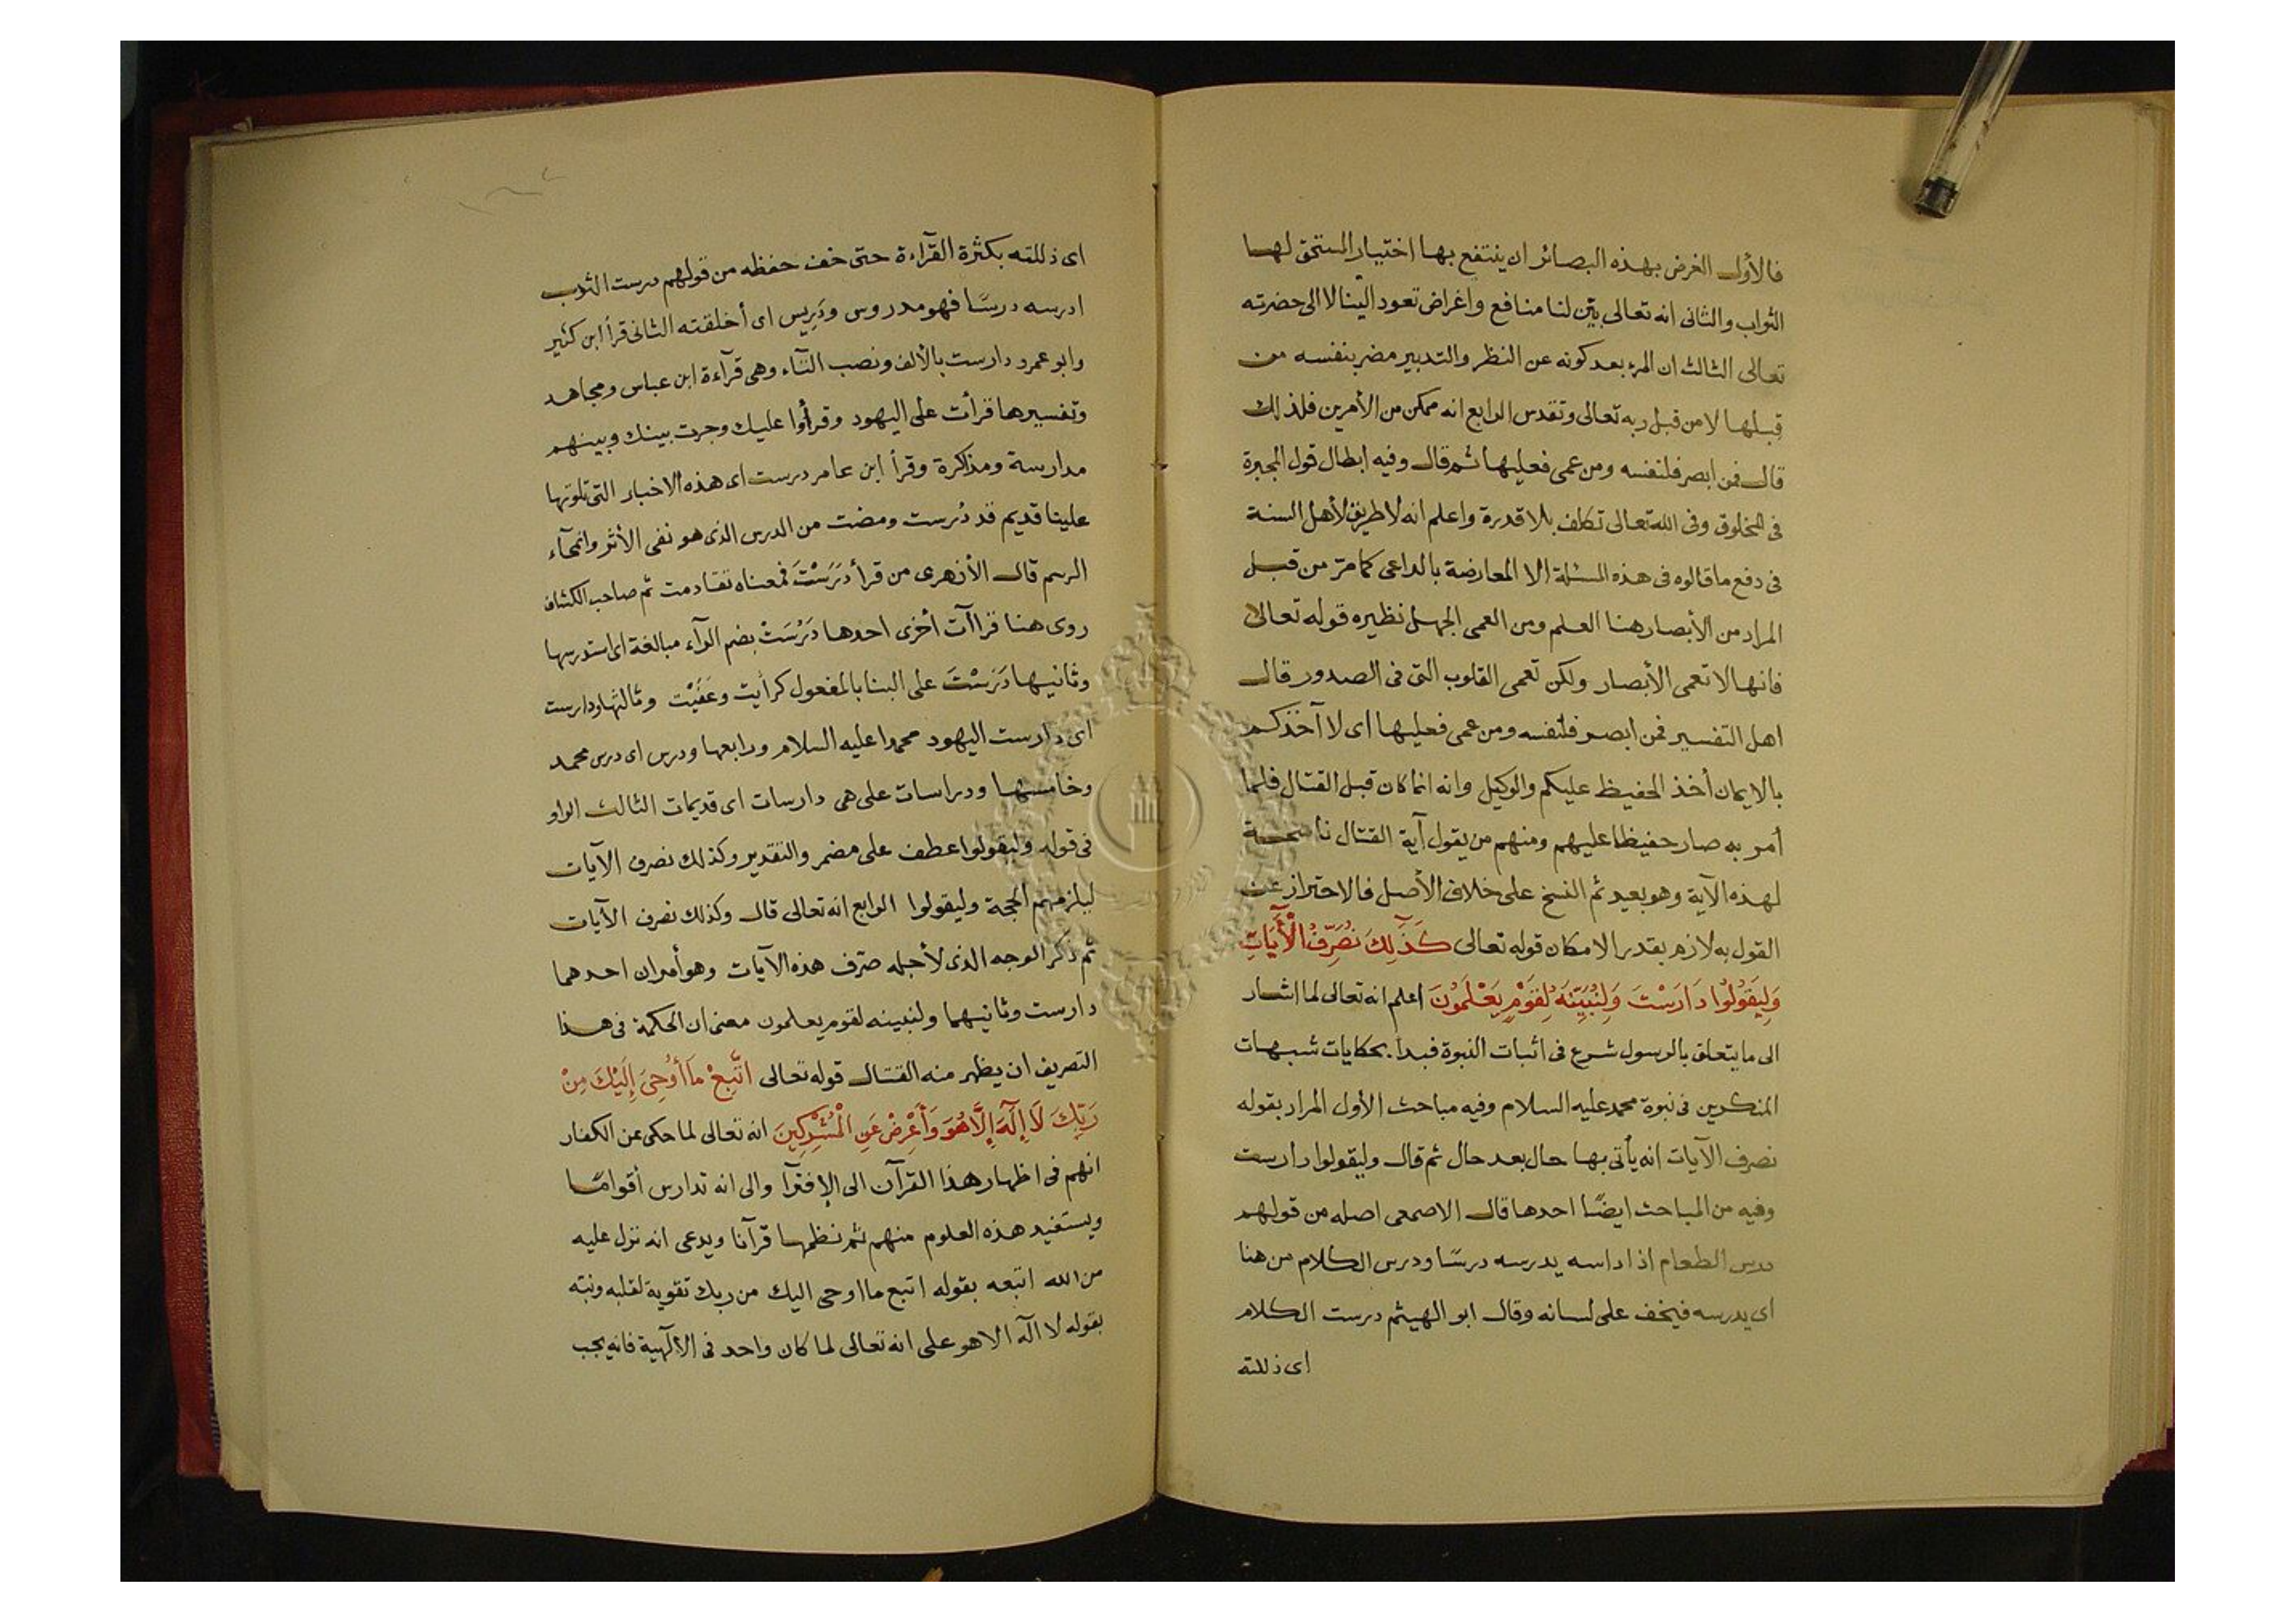 فالأول الغرض بهذه البصائر ان ينتفع بها اختيار المستحق لها
الثواب والثانى انه تعالى بيّن لنا منافع واغراض تعود الينا لا الى حضرته
تعالى الثالث ان المرء بعد كونه عن النظر والتدبير مضر بنفسه من
قبلها لا من قبل ربه تعالى وتقدس الرابع انه ممكن من الأمرين فلذلك
قال فمن ابصر فلنفسه ومن عمى فعليها ثم قال وفيه ابطال قول المجبرة
فى المخلوق وفى الله تعالى تكلف بلا قدرة واعلم انه لا طريق لأهل السنة
فى دفع ما قالوه فى هذه المسئلة الا المعارضة بالداعى كما مرّ من قبل
المراد من الأبصار هنا العلم ومن العمى الجهل نظيره قوله تعالى
فانها لا تعمى الأبصار ولكن تعمى القلوب التى فى الصدور قال
اهل التفسير فمن ابصر فلنفسه ومن عمى فعليها اى لا آخذكم
بالايمان أخذ الحفيظ عليكم والوكيل وانه انما كان قبل القتال فلما
أمر به صار حفيظا عليهم ومنهم من يقول آية القتال ناسخة
لهذه الآية وهو بعيد ثم النسخ على خلاف الأصل فالاحتراز عن
القول به لازم بقدر الامكان قوله تعالى كَذَٰلِكَ نُصَرِّفُ الْأَيَاتِ
وَلِيَقُولُوا دَارَسْتَ وَلِنُبَيِّنَهُ لِقَوْمٍ يَعْلَمُونَ اعلم انه تعالى لما اشار
الى ما يتعلق بالرسول شرع فى اثبات النبوة فبدأ بحكايات شبهات
المنكرين فى نبوة محمد عليه السلام وفيه مباحث الأول المراد بقوله
نصرف الآيات انه يأتى بها حال بعد حال ثم قال وليقولوا دارست
وفيه من المباحث ايضًا احدها قال الاصمعى اصله من قولهم
درس الطعام اذا داسه يدرسه درسًا ودرس الكلام من هنا
اى يدرسه فيخف على لسانه وقال ابو الهيثم درست الكلام
اى ذللته
اى ذللته بكثرة القرآءة حتى خف حفظه من قولهم درست الثوب
ادرسه درسًا فهو مدروس ودَرِيس اى أخلقته الثانى قرأ ابن كثير
وابو عمرو دارست بالألف ونصب التآء وهى قرآءة ابن عباس ومجاهد
وتفسيرها قرأت على اليهود وقرأوا عليك وجرت بينك وبينهم
مدارسة ومذاكرة وقرأ ابن عامر درست اى هذه الاخبار التى تلوتها
علينا قديم قد دُرست ومضت من الدرس الذى هو نفى الأثر وانمحآء
الرسم قال الأزهرى من قرأ دَرَسْتَ فمعناه تقادمت ثم صاحب الكشاف
روى هنا قراآت أخرى احدها دَرُسَتْ بضم الرآء مبالغة اى استدرسها
وثانيها دَرَسْتَ على البنا بالمفعول كرأيت وعَفَيْت وثالثها ودارست
اى دارست اليهود محمدا عليه السلام ورابعها ودرس اى درس محمد
وخامسها ودراسات على هى دارسات اى قديمات الثالث الواو
فى قوله وليقولوا عطف على مضمر والتقدير وكذلك نصرف الآيات
ليلزمهم الحجة وليقولوا الرابع انه تعالى قال وكذلك نصرف الآيات
ثم ذكر الوجه الذى لأجله صرّف هذه الآيات وهو أمران احدهما
دارست وثانيهما ولنبينه لقوم يعلمون معنى ان الحكمة فى هذا
التصريف ان يظهر منه القتال قوله تعالى اتَّبِعْ مَا أُوحِىَ إِلَيْكَ مِنْ
رَبِّكَ لَا إِلَٓهَ إِلَّا هُوَ وَأَعْرِضْ عَنِ الْمُشْرِكِينَ انه تعالى لما حكى عن الكفار
انهم فى اظهار هذا القرآن الى الإفترآ والى انه تدارس أقوامًا
ويستفيد هذه العلوم منهم ثم نظمها قرآنا ويدعى انه نزل عليه
من الله اتبعه بقوله اتبع ما اوحى اليك من ربك تقوية لقلبه ونبّه
بقوله لا اله الا هو على انه تعالى لما كان واحد فى الألهية فانه يجب